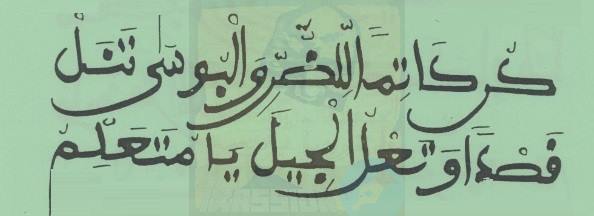 كن كَاتِمًا لِلضُّرِّ وَالْبُوسَى تَنَلْ
قَصْدًا وَتَعْلُ الْجِيلَ يَا مُتَعَلِّمُ